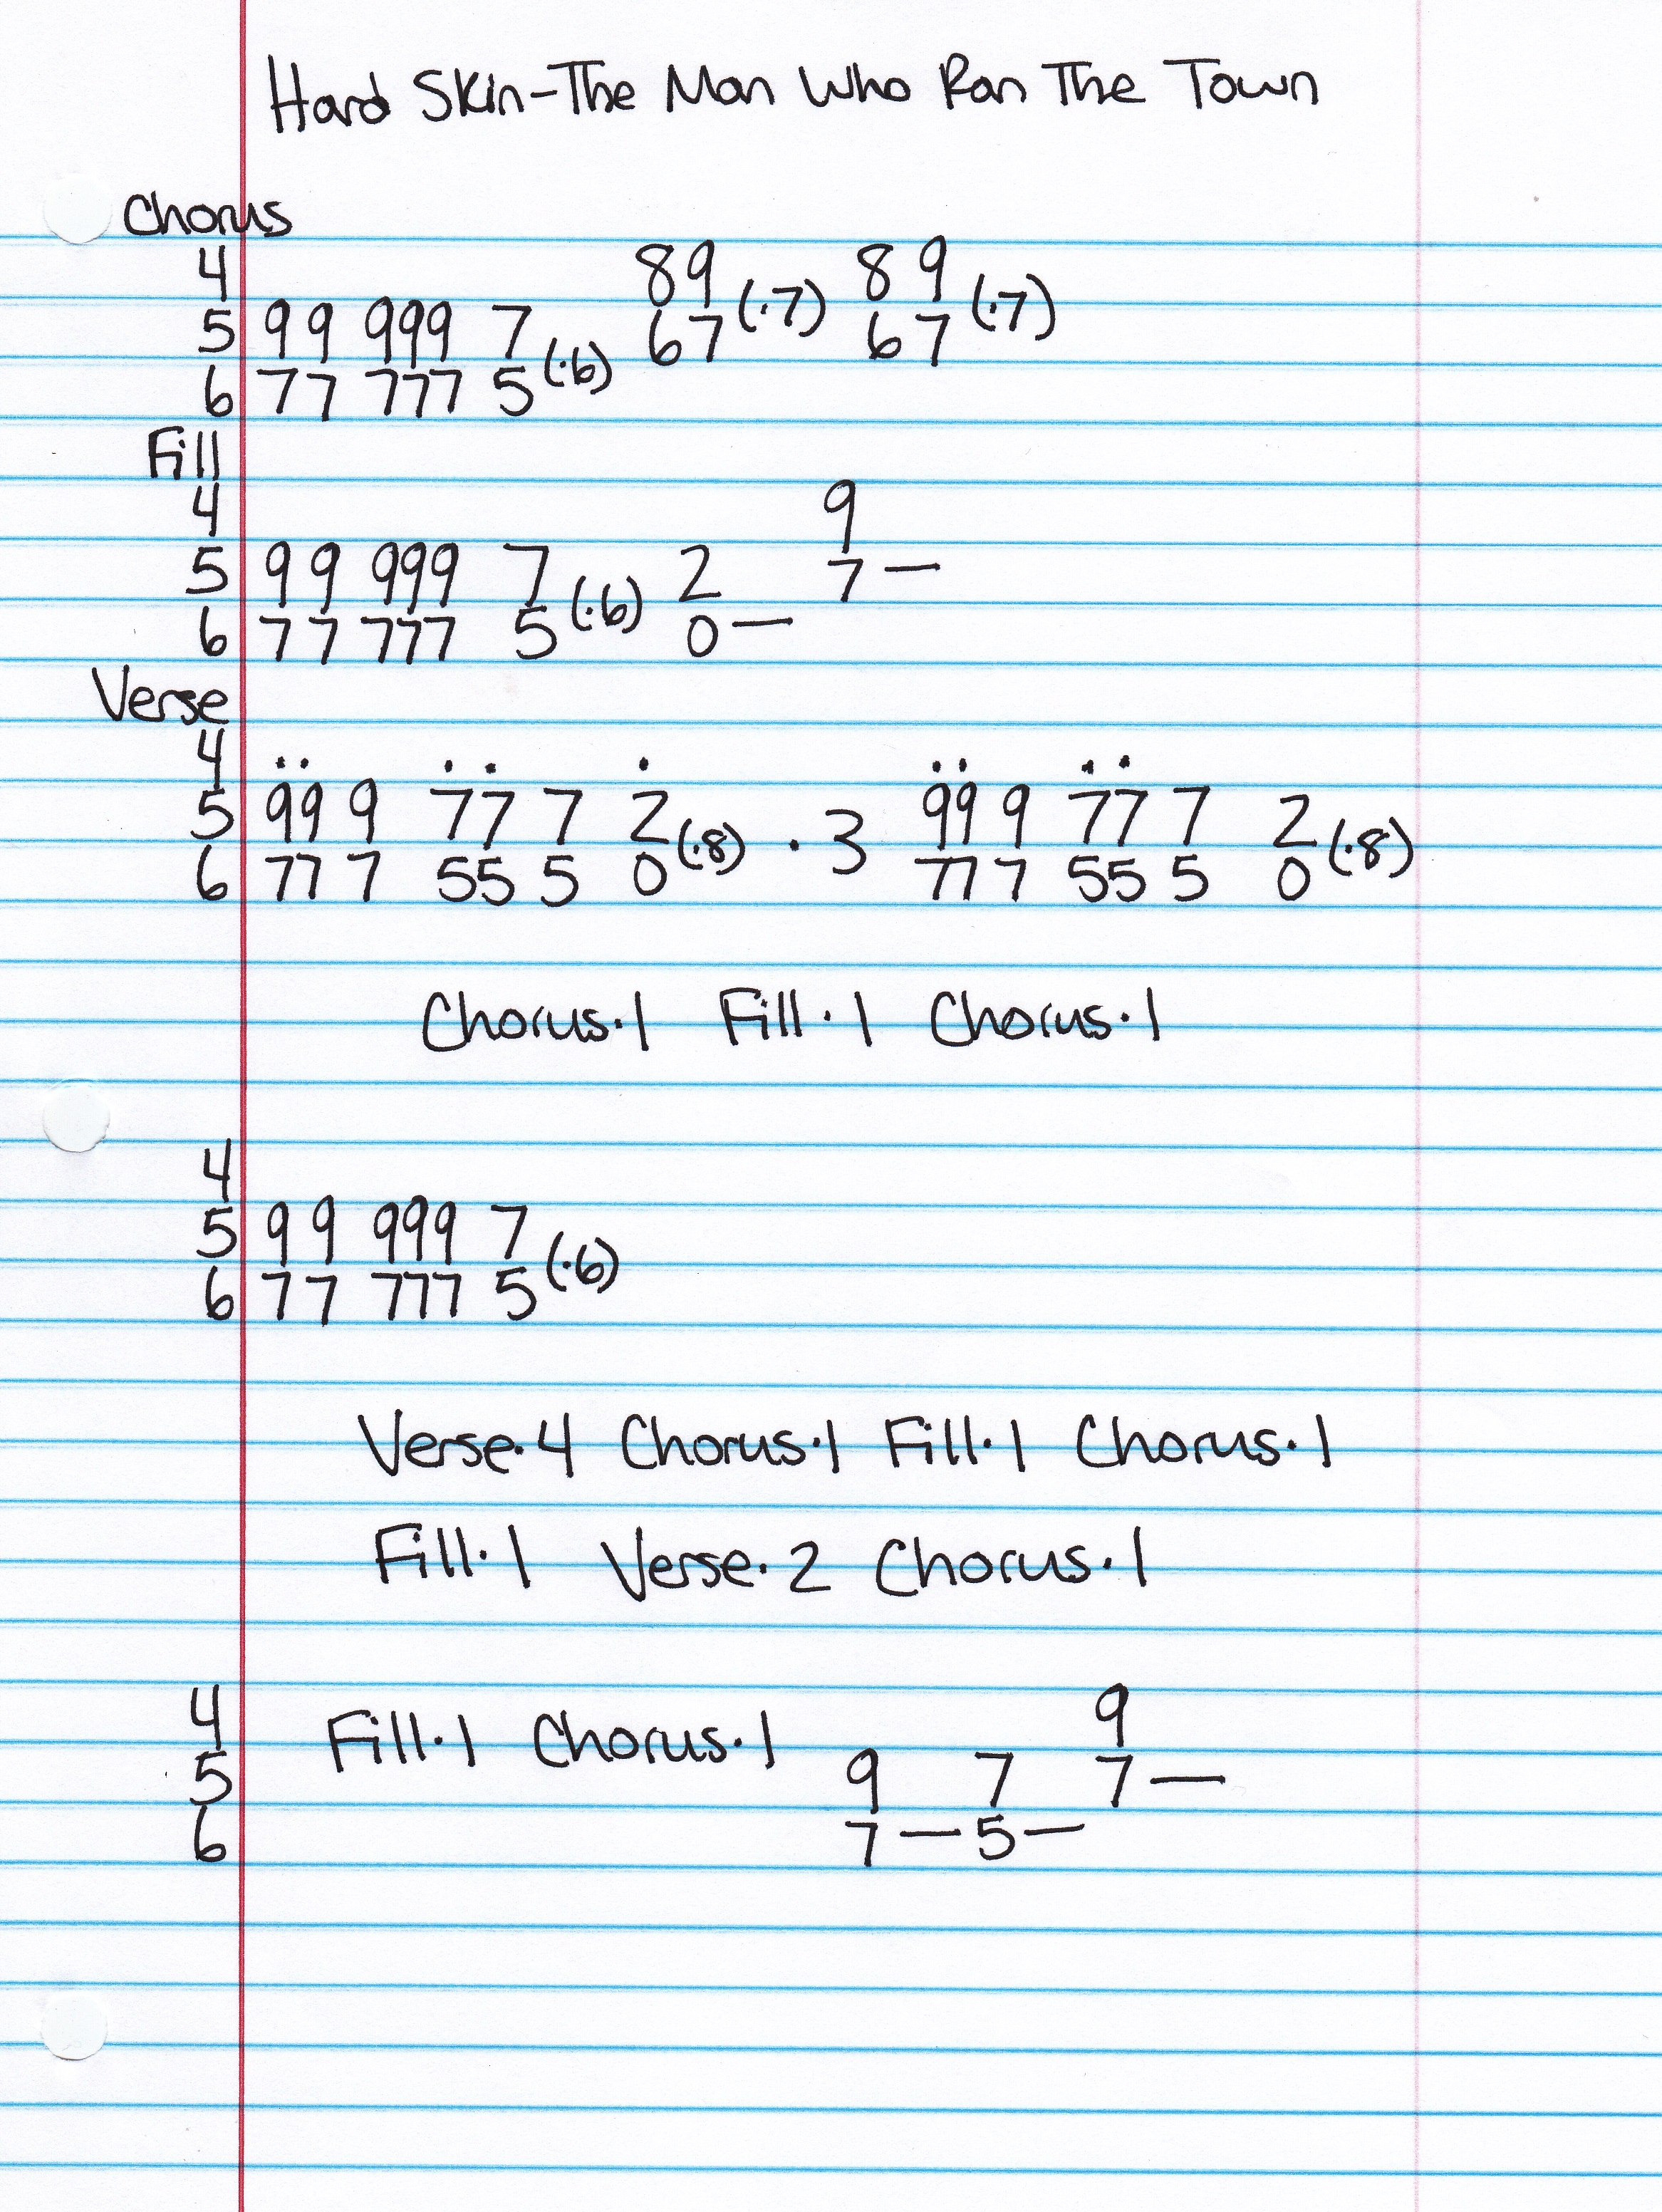 Hard Skin-The Man Who Ran The Town
Chorus
4 89 (·7) 89 (·7)
5 99 999 7 (·6) 67 67
6 77 777 5
Fill
4 9
5 99 999 7 (·6) 2 7 —
6 77 777 5 0 —
Verse
4 .. .. . .. ..
5 99 9 77 7 2 (·8) · 3 99 9 77 7 2 (·8)
6 77 7 55 5 0 77 7 55 5 0
Chorus·1 Fill·1 Chorus·1
4
5 99 999 7 (·6)
6 77 777 5
Verse·4 Chorus·1 Fill·1 Chorus·1
Fill·1 Verse·2 Chorus·1
4 Fill·1 Chorus·1 9
5 9 7 7 —
6 7 — 5 —